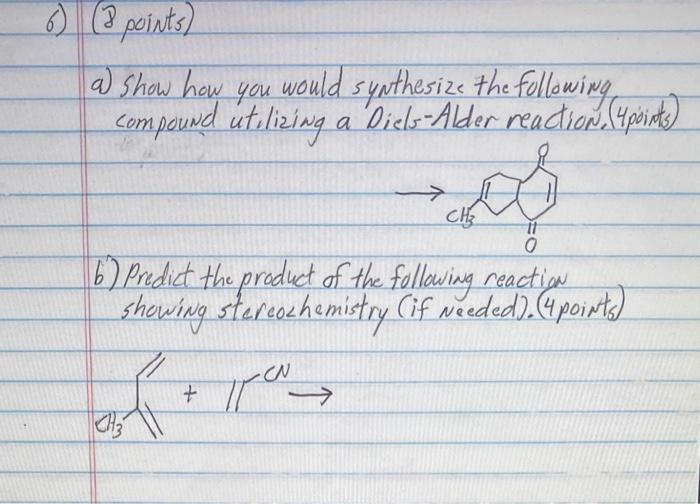 6) (8 points)
a) Show how you would synthesize the following
compound utilizing a Diels-Alder reaction. (4 points)
O
CH3
O
b) Predict the product of the following reaction
showing stereochemistry (if needed). (4 points)
+ CN
CH3